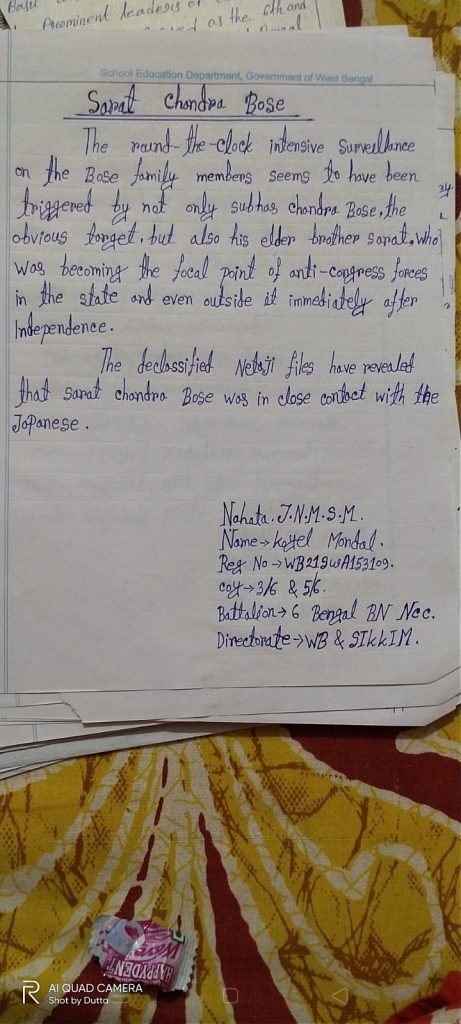 Prominent leaders of
as the 6th and
School Education Department, Government of West Bengal
Sarat Chandra Bose
The round-the-clock intensive surveillance
on the Bose family members seems to have been
triggered by not only subhas chandra Bose, the
obvious target, but also his elder brother sarat, who
was becoming the focal point of anti-congress forces
in the state and even outside it immediately after
Independence.
The declassified Netaji files have revealed
that sarat chandra Bose was in close contact with the
Japanese.
Nahata. J.N.M.S.M.
Name→ Koyel Mondal.
Reg No →WB21SWA153109.
coy→3/6 & 5/6.
Battalion→ 6 Bengal BN Ncc.
Directorate→WB & SIKKIM.
HAPPYDENT
Wave
AI QUAD CAMERA
Shot by Dutta